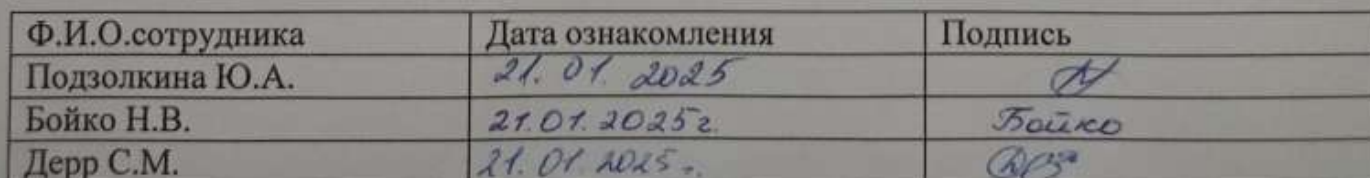 Ф.И.О.сотрудника Дата ознакомления Подпись
Подзолкина Ю.А. 21. 01. 2025
Бойко Н.В. 21.01.2025г. Бойко
Дерр С.М. 21. 01. 2025г.